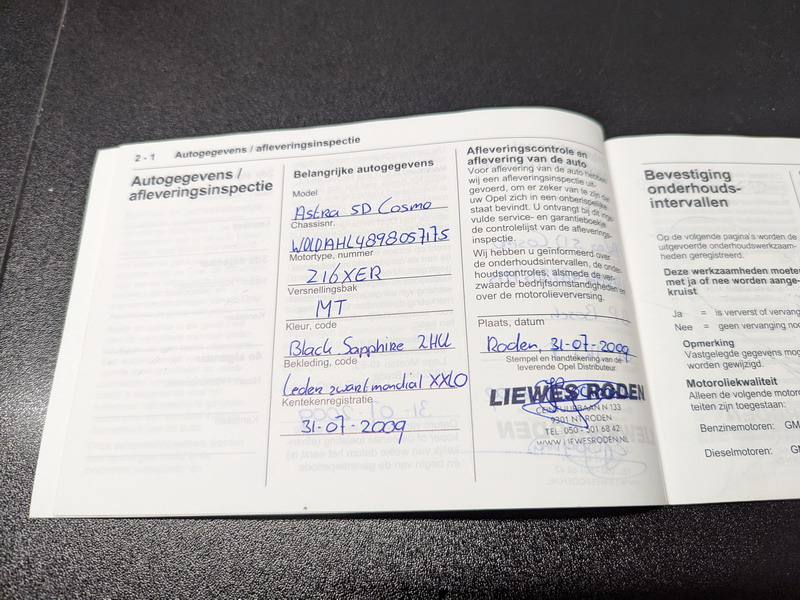 2 - 1 Autogegevens / afleveringsinspectie
Autogegevens /
afleveringsinspectie
Belangrijke autogegevens
Model
Astra 5D Cosmo
Chassisnr.
W0LDAHL4898057175
Motortype, nummer
Z16XER
Versnellingsbak
MT
Kleur, code
Black Sapphire 2HU
Bekleding, code
Leder zwart mondial XXLO
Kentekenregistratie
31-07-2009
Afleveringscontrole en
aflevering van de auto
Voor aflevering van de auto hebben
wij een afleveringsinspectie uit-
gevoerd, om er zeker van te zijn dat
uw Opel zich in een onberispelijke
staat bevindt. U ontvangt bij dit inge-
vulde service- en garantieboekje
de controlelijst van de afleverings-
inspectie.
Wij hebben u geïnformeerd over
de onderhoudsintervallen, de onder-
houdscontroles, alsmede de ver-
zwaarde bedrijfsomstandigheden en
over de motorolieverversing.
Plaats, datum
Roden, 31-07-2009
Stempel en handtekening van de
leverende Opel Distributeur
LIEWES RODEN
CEINTUURBAAN N 133
9301 NT RODEN
TEL. 050 - 501 68 42
WWW.LIEWESRODEN.NL
Bevestiging
onderhouds-
intervallen
Op de volgende pagina's worden de
uitgevoerde onderhoudswerkzaam-
heden geregistreerd.
Deze werkzaamheden moeten
met ja of nee worden aange-
kruist
Ja = is ververst of vervang
Nee = geen vervanging no
Opmerking
Vastgelegde gegevens mog
worden gewijzigd.
Motoroliekwaliteit
Alleen de volgende motor
teiten zijn toegestaan:
Benzinemotoren: GM
Dieselmotoren: G